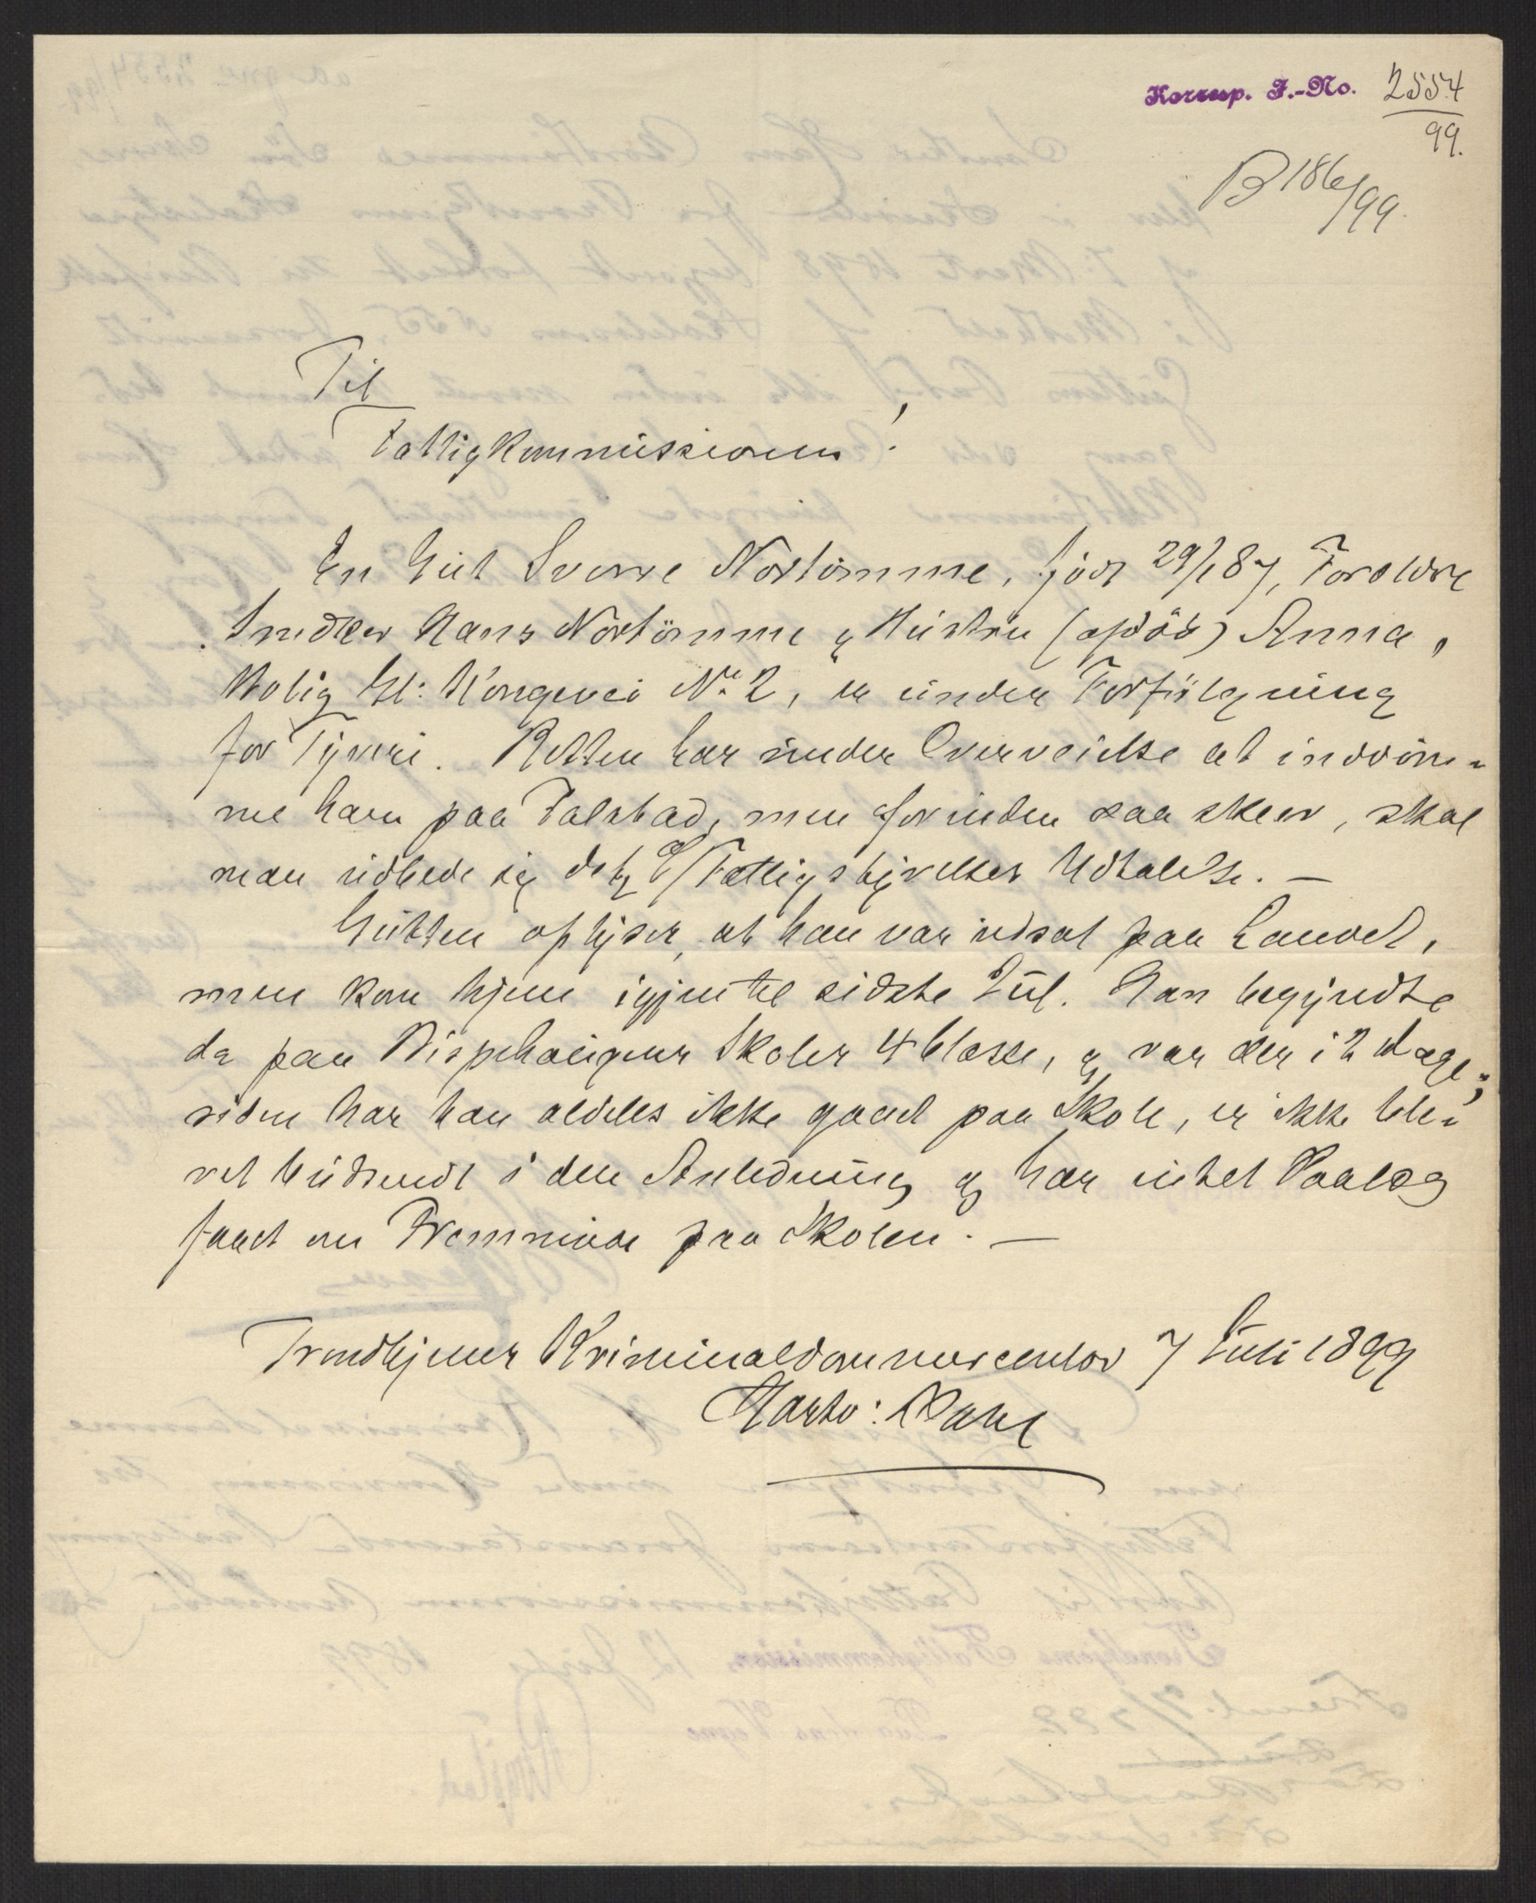 Korresp. J.-No. 2554
99.
B 186/99.
Til
Fattigkommissionen!
En Gut Sverre Nostömme, född 29/1 87, Forældre
Snedker Hans Nostömme & Hustru (afdöd) Anna,
Bolig Gl: Kongevei No 2, er under Forfölgning
for Tyveri. Retten har under Overveielse at inddöm-
me ham paa Falstad, men forinden saa skeer, skal
man udbede sig det Fattigstyrelses Udtalelse. —
Gutten oplyser, at han var udsat paa Landet,
men kom hjem igjen til sidste Jul. Han begyndte
da paa Bispehaugens Skoles 4 Classe, og var der i 2 Dage;
siden har han aldeles ikke gaaet paa Skole, er ikke ble-
vet budsendt i den Anledning og har intet Paalæg
faaet om Fremmöde paa Skolen. —
Trondhjems Kriminaldommercontor 7 Juli 1899